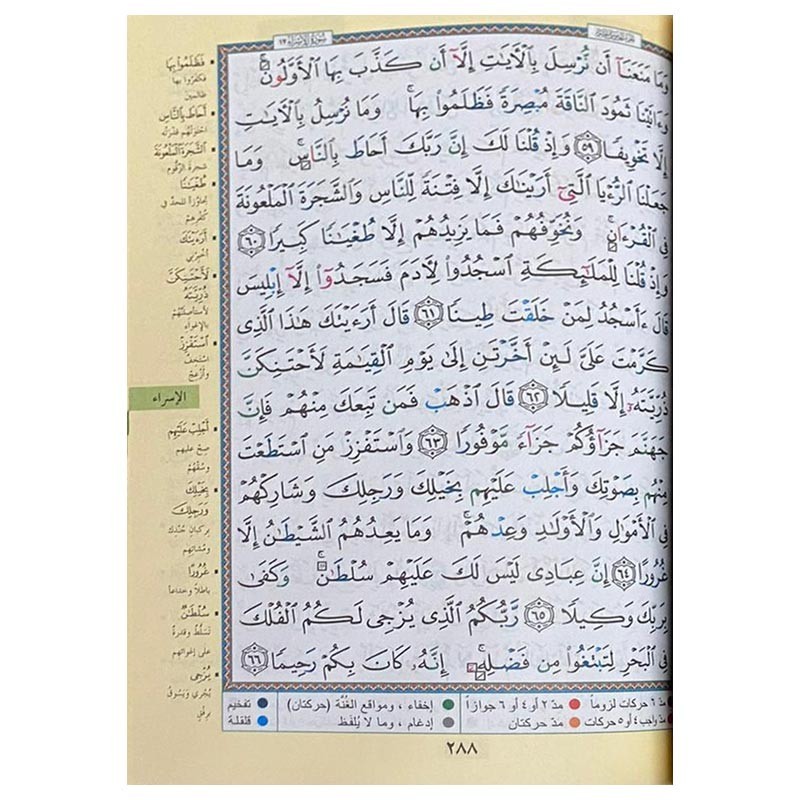 سورة الإسراء ١٧
وَمَا مَنَعَنَآ أَن نُّرْسِلَ بِٱلْأَيَٰتِ إِلَّآ أَن كَذَّبَ بِهَا ٱلْأَوَّلُونَ ۚ
وَءَاتَيْنَا ثَمُودَ ٱلنَّاقَةَ مُبْصِرَةً فَظَلَمُوا۟ بِهَا ۚ وَمَا نُرْسِلُ بِٱلْأَيَٰتِ
إِلَّا تَخْوِيفًا ٥٩ وَإِذْ قُلْنَا لَكَ إِنَّ رَبَّكَ أَحَاطَ بِٱلنَّاسِ ۚ وَمَا
جَعَلْنَا ٱلرُّءْيَا ٱلَّتِىٓ أَرَيْنَٰكَ إِلَّا فِتْنَةً لِّلنَّاسِ وَٱلشَّجَرَةَ ٱلْمَلْعُونَةَ
فِى ٱلْقُرْءَانِ ۚ وَنُخَوِّفُهُمْ فَمَا يَزِيدُهُمْ إِلَّا طُغْيَٰنًا كَبِيرًا ٦٠
وَإِذْ قُلْنَا لِلْمَلَٰٓئِكَةِ ٱسْجُدُوا۟ لِأَدَمَ فَسَجَدُوٓا۟ إِلَّآ إِبْلِيسَ
قَالَ ءَأَسْجُدُ لِمَنْ خَلَقْتَ طِينًا ٦١ قَالَ أَرَءَيْتَكَ هَٰذَا ٱلَّذِى
كَرَّمْتَ عَلَىَّ لَئِنْ أَخَّرْتَنِ إِلَىٰ يَوْمِ ٱلْقِيَٰمَةِ لَأَحْتَنِكَنَّ
ذُرِّيَّتَهُۥٓ إِلَّا قَلِيلًا ٦٢ قَالَ ٱذْهَبْ فَمَن تَبِعَكَ مِنْهُمْ فَإِنَّ
جَهَنَّمَ جَزَآؤُكُمْ جَزَآءً مَّوْفُورًا ٦٣ وَٱسْتَفْزِزْ مَنِ ٱسْتَطَعْتَ
مِنْهُم بِصَوْتِكَ وَأَجْلِبْ عَلَيْهِم بِخَيْلِكَ وَرَجِلِكَ وَشَارِكْهُمْ
فِى ٱلْأَمْوَٰلِ وَٱلْأَوْلَٰدِ وَعِدْهُمْ ۚ وَمَا يَعِدُهُمُ ٱلشَّيْطَٰنُ إِلَّا
غُرُورًا ٦٤ إِنَّ عِبَادِى لَيْسَ لَكَ عَلَيْهِمْ سُلْطَٰنٌ ۚ وَكَفَىٰ
بِرَبِّكَ وَكِيلًا ٦٥ رَّبُّكُمُ ٱلَّذِى يُزْجِى لَكُمُ ٱلْفُلْكَ
فِى ٱلْبَحْرِ لِتَبْتَغُوا۟ مِن فَضْلِهِۦٓ ۚ إِنَّهُۥ كَانَ بِكُمْ رَحِيمًا ٦٦
• فَظَلَمُوا بِهَا
فكفَرُوا بها
ظالمين
• أَحَاطَ بِالنَّاسِ
احتوتْهُم قدرَتُه
• الشَّجَرَةَ الْمَلْعُونَةَ
شجرة الزّقّوم
• طُغْيَانًا
تجاوُزاً للحدّ في
كُفْرِهِمْ
• أَرَءَيْتَكَ
أخبِرْني
• لَأَحْتَنِكَنَّ
ذُرِّيَّتَهُ
لأستأصلنَّهُمْ
بالإغواء
• اسْتَفْزِزْ
استَخفَّ
وأزْعِجْ
الإسراء
• أَجْلِبْ عَلَيْهِم
صِحْ عليهم
وسُقْهُمْ
• بِخَيْلِكَ
وَرَجِلِكَ
بركبانِ جُنْدِكَ
ومُشاتِهِم
• غُرُورًا
باطلاً وخداعاً
• سُلْطَانٌ
تَسَلُّط وقدرةٌ
على إغوائهم
• يُزْجِي
يُجْري ويَسُوقُ
برفْقٍ
مدّ ٦ حركات لزوماً ● مدّ ٢ أو ٤ أو ٦ جوازاً ● إخفاء، ومواقع الغُنَّة (حركتان) ● تفخيم
مدّ واجب ٤ أو ٥ حركات ● مدّ حركتان ● إدغام، وما لا يُلفَظ ● قلقلة
٢٨٨